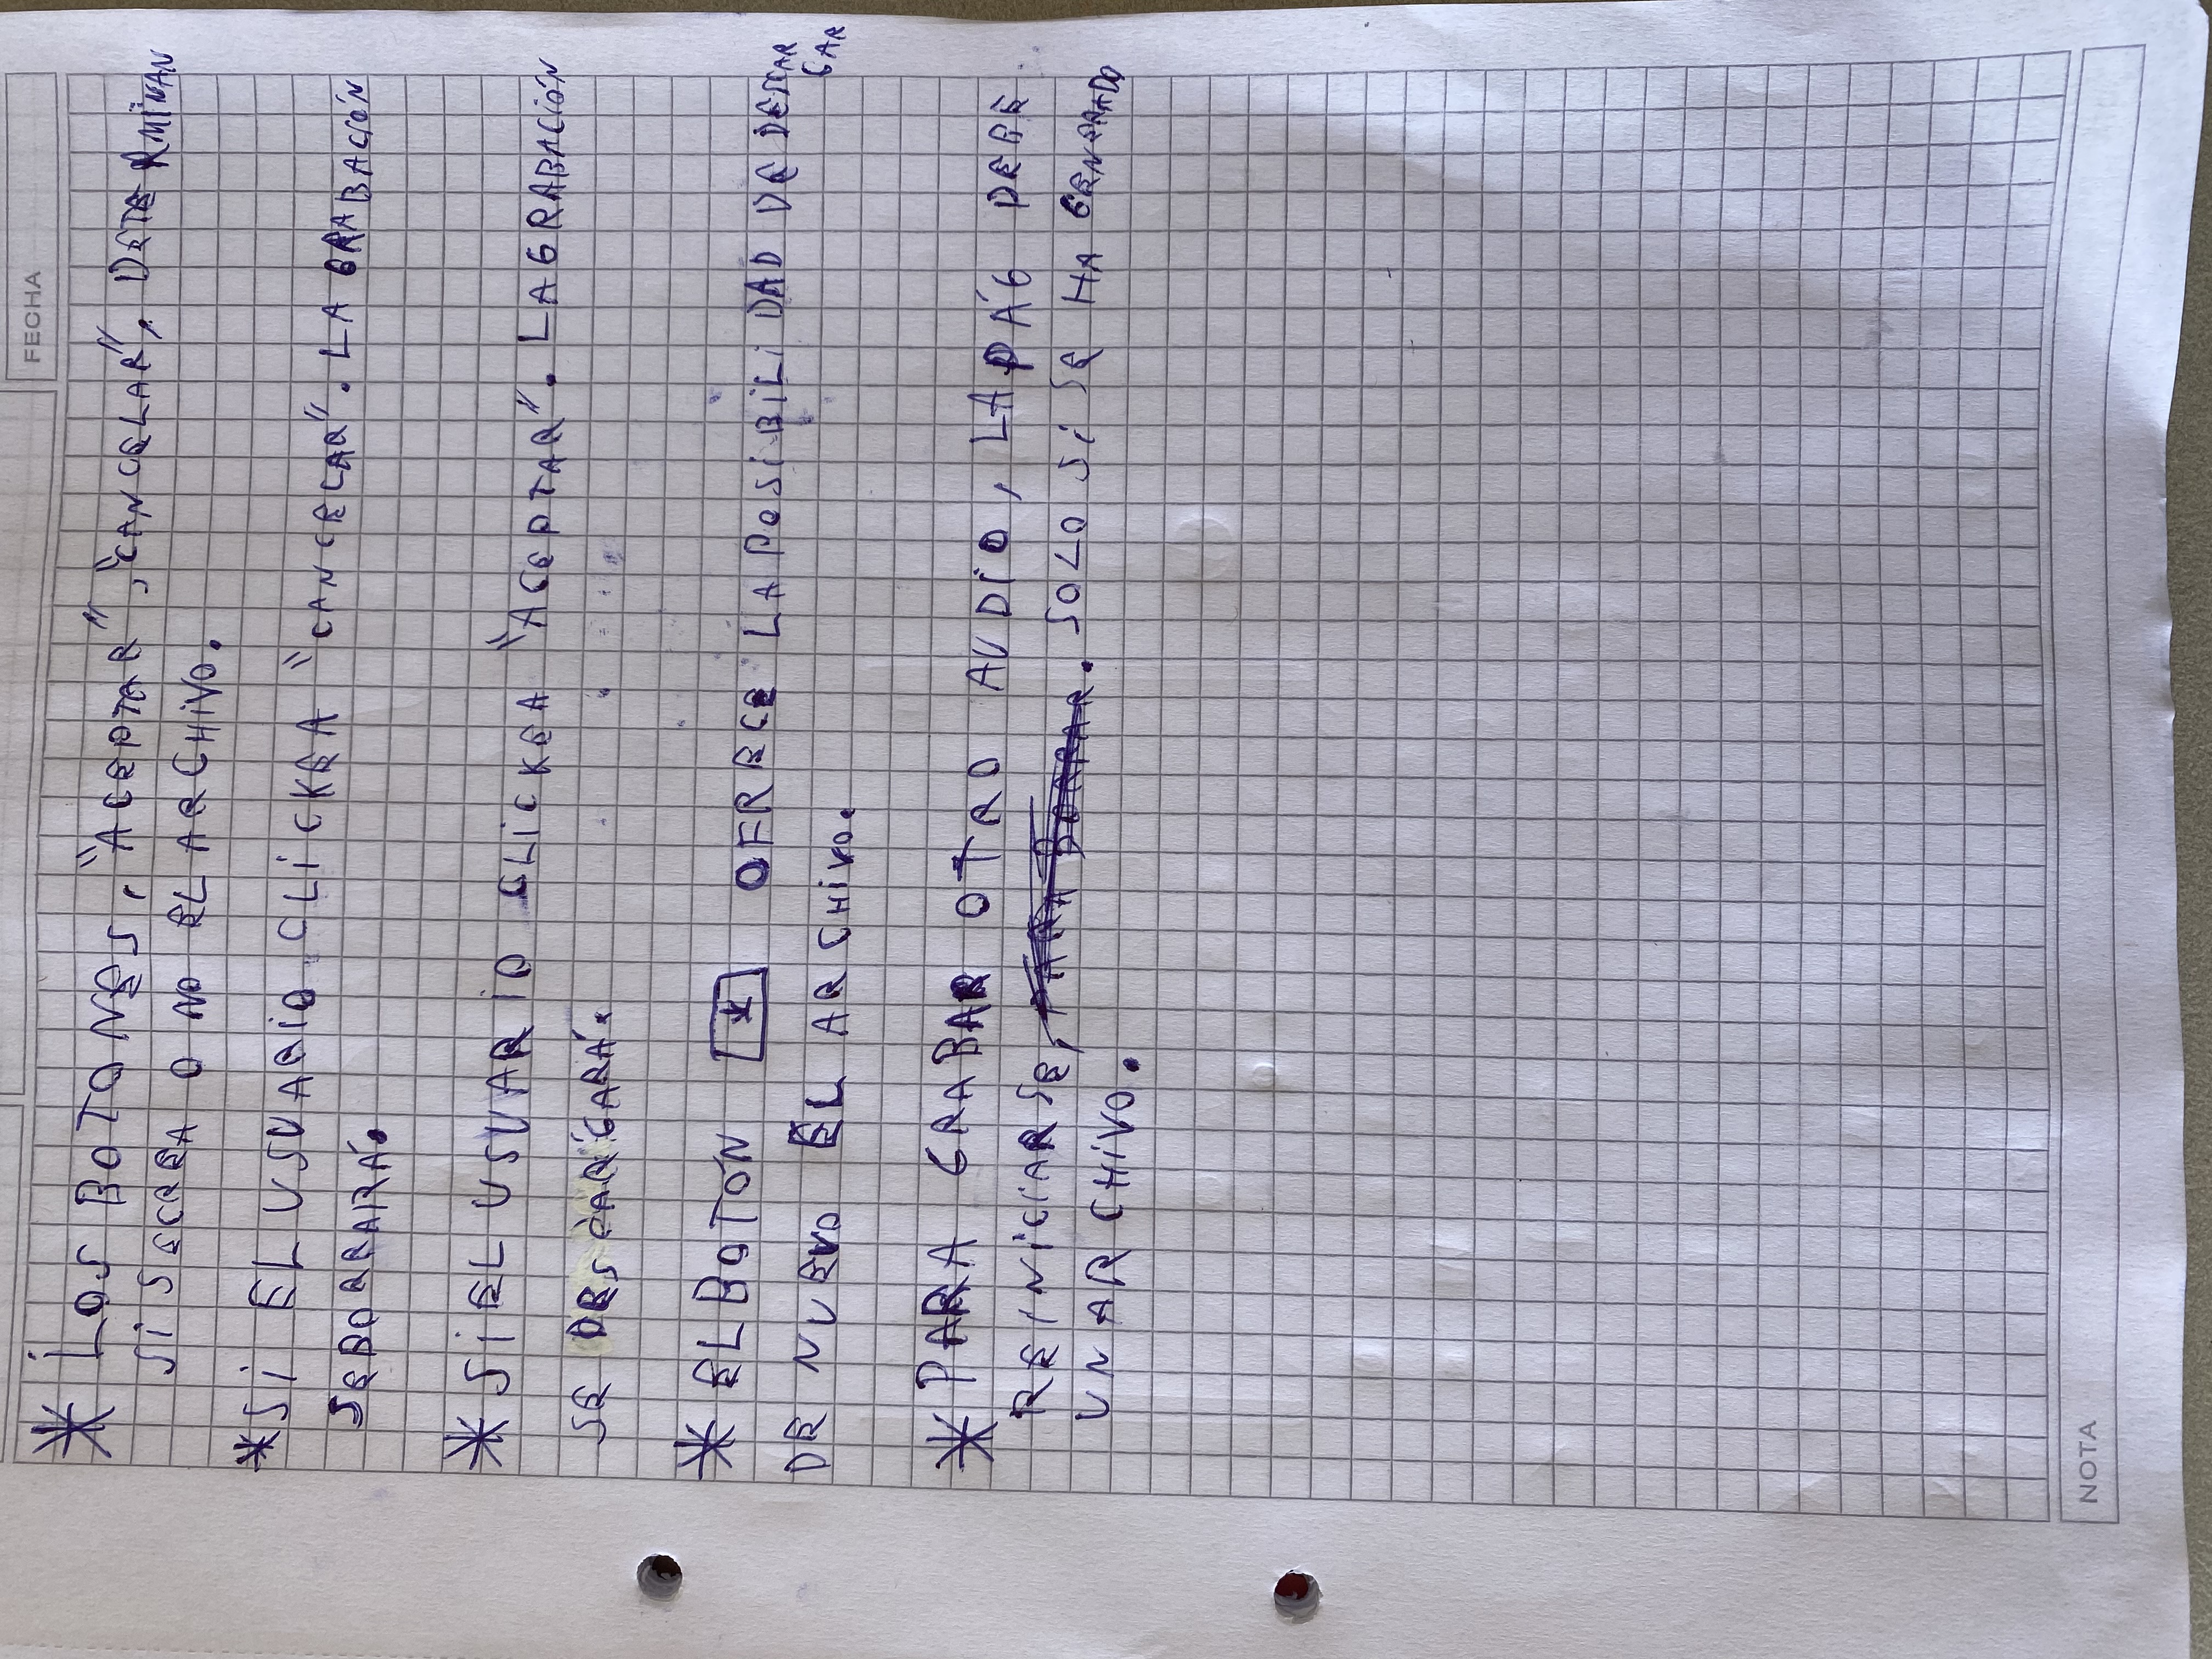 FECHA
* LOS BOTONES, "ACEPTAR", "CANCELAR", DETERMINAN
SI SE CREA O NO EL ARCHIVO.
* SI EL USUARIO CLICKEA "CANCELAR". LA GRABACIÓN
SE BORRARÁ.
* SI EL USUARIO CLICKEA "ACEPTAR". LA GRABACIÓN
SE DESCARGARÁ.
* EL BOTÓN OFRECE LA POSIBILIDAD DE DESCAR
GAR
DE NUEVO EL ARCHIVO.
* PARA GRABAR OTRO AUDIO, LA PÁG DEBE
REINICIARSE, PARA BORRAR. SOLO SI SE HA GENERADO
UN ARCHIVO.
NOTA